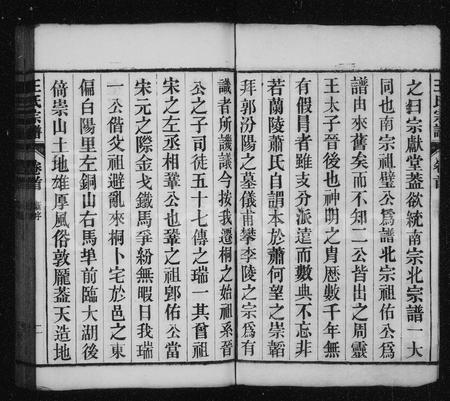 王氏宗譜
卷首
之曰宗獻堂葢欲統南宗北宗譜一大
同也南宗祖璧公爲譜北宗祖佑公爲
譜由來舊矣而不知二公皆出之周靈
王太子晉後也神明之胄歷數千年無
有假冐者雖支分派遠而數典不忘非
若蘭陵蕭氏自謂本於蕭何望之崇韜
拜郭汾陽之墓儀甫攀李陵之宗爲有
識者所譏議今按我遷桐之始祖系晉
公之子司徒五十七傳之瑞一其酋祖
宋之左丞相鞏公也鞏之祖郢佑公當
宋元之際金戈鐵馬爭紛無暇日我瑞
一公偕爻祖避亂來桐卜宅於邑之東
偏白陽里左銅山右馬埠前臨大湖後
倚崇山土地雄厚風俗敦龐葢天造地
王氏宗譜
卷首